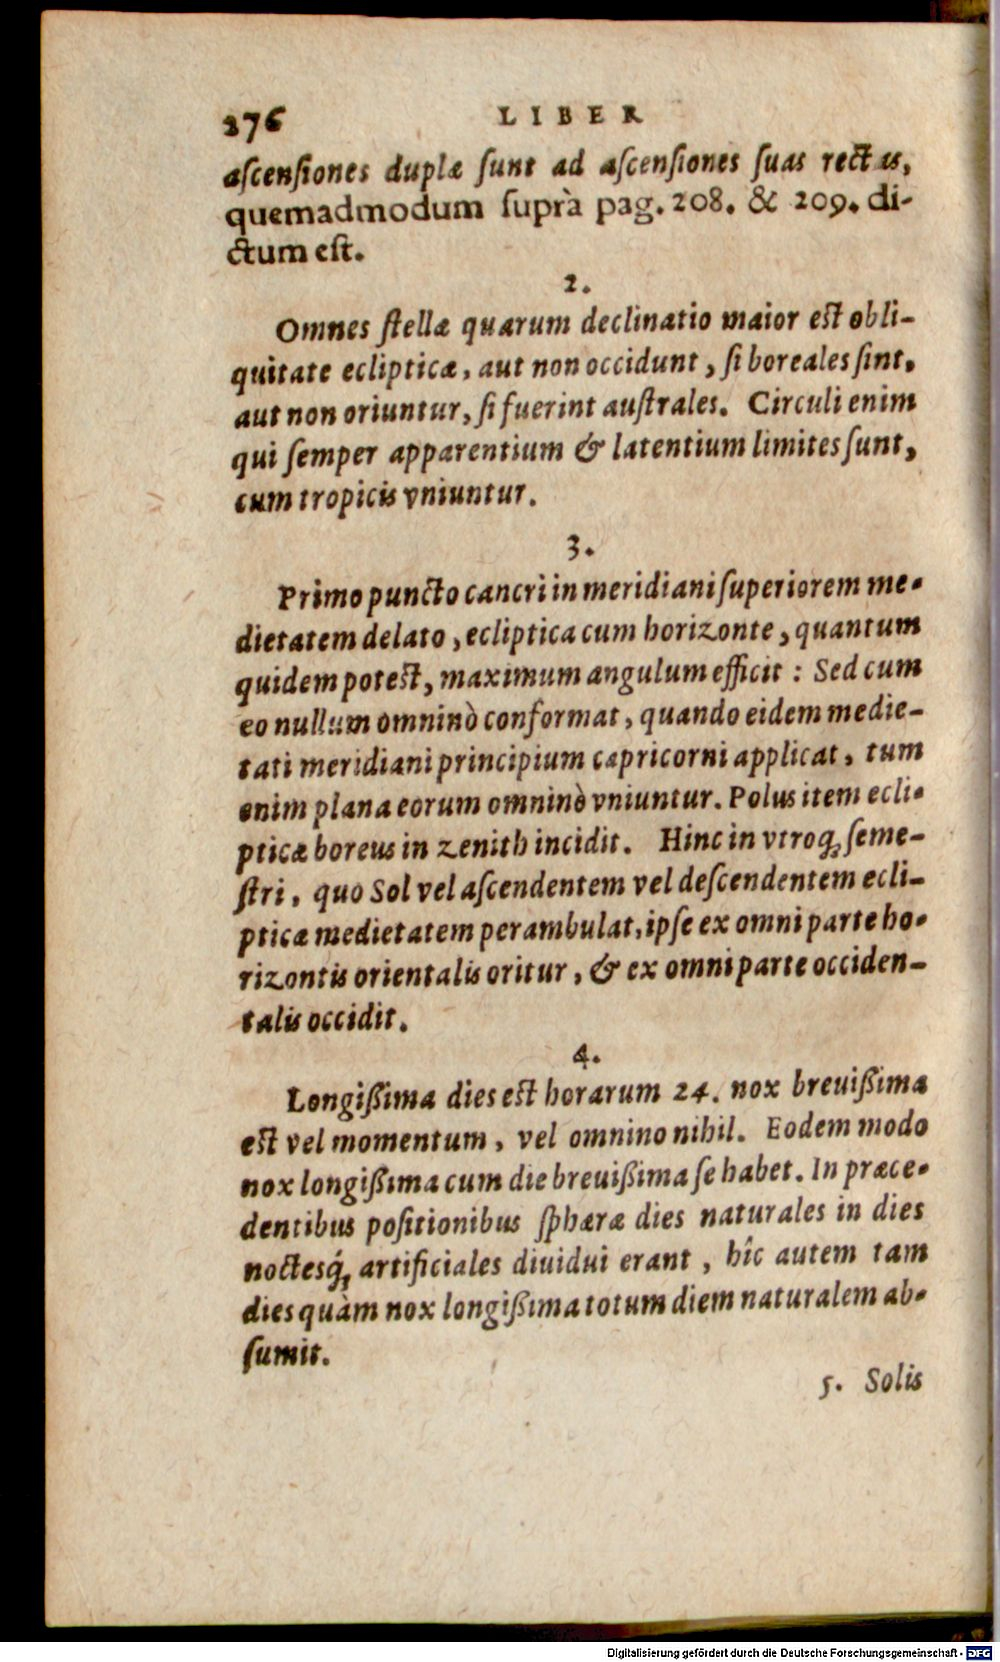 276 LIBER
ascensiones duplæ sunt ad ascensiones suas rectas,
quemadmodum suprà pag. 208. & 209. di-
ctum est.
2.
Omnes stellæ quarum declinatio maior est obli-
quitate eclipticæ, aut non occidunt, si boreales sint,
aut non oriuntur, si fuerint australes. Circuli enim
qui semper apparentium & latentium limites sunt,
cum tropicis vniuntur.
3.
Primo puncto cancri in meridiani superiorem me-
dietatem delato, ecliptica cum horizonte, quantum
quidem potest, maximum angulum efficit: Sed cum
eo nullum omninò conformat, quando eidem medie-
tati meridiani principium capricorni applicat, tum
enim plana eorum omninò vniuntur. Polus item ecli-
pticæ boreus in zenith incidit. Hinc in vtroq; seme-
stri, quo Sol vel ascendentem vel descendentem ecli-
pticæ medietatem perambulat, ipse ex omni parte ho-
rizontis orientalis oritur, & ex omni parte occiden-
talis occidit.
4.
Longißima dies est horarum 24. nox breuißima
est vel momentum, vel omnino nihil. Eodem modo
nox longißima cum die breuißima se habet. In præce-
dentibus positionibus sphæræ dies naturales in dies
noctesq́; artificiales diuidui erant, hîc autem tam
dies quàm nox longißima totum diem naturalem ab-
sumit.
5. Solis
Digitalisierung gefördert durch die Deutsche Forschungsgemeinschaft - DFG